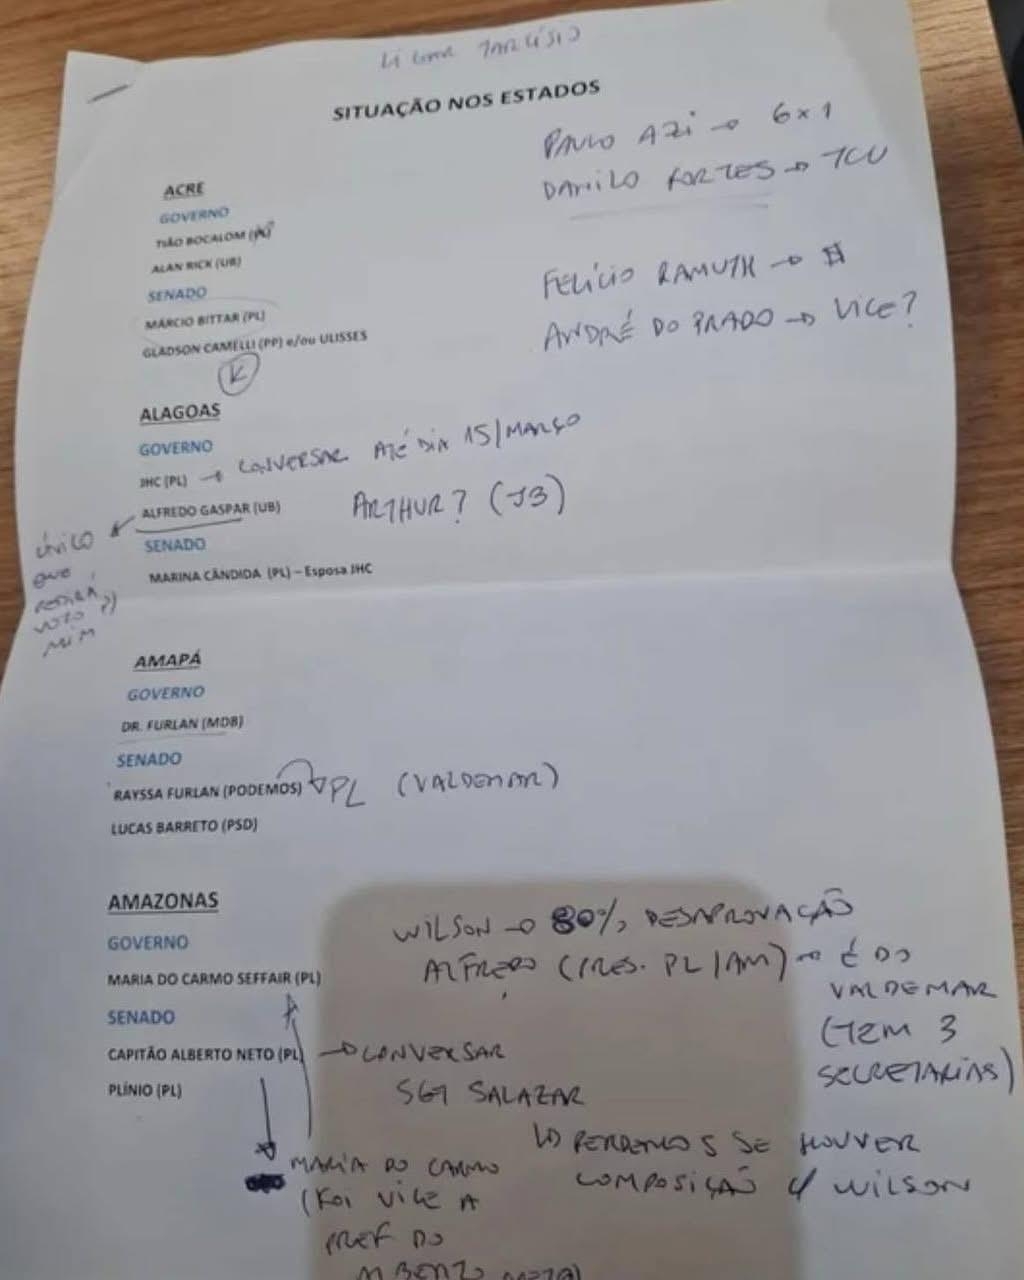 LIGAR TARCÍSIO
SITUAÇÃO NOS ESTADOS
PAULO AZI → 6x1
DANILO FORTES → TCU
ACRE
GOVERNO
TIÃO BOCALOM
ALAN RICK (UB)
SENADO
MÁRCIO BITTAR (PL)
GLADSON CAMELLI (PP) e/ou ULISSES
K
FELÍCIO RAMUTH → $
ANDRÉ DO PRADO → VICE?
ALAGOAS
GOVERNO
JHC (PL) → CONVERSAR ATÉ DIA 15/MARÇO
ALFREDO GASPAR (UB)
ARTHUR? (JB)
ÚNICO
QUE
PEDIRÁ
VOTO P/
MIM
SENADO
MARINA CÂNDIDA (PL) – Esposa JHC
AMAPÁ
GOVERNO
DR. FURLAN (MDB)
SENADO
RAYSSA FURLAN (PODEMOS) → PL (VALDEMAR)
LUCAS BARRETO (PSD)
AMAZONAS
GOVERNO
MARIA DO CARMO SEFFAIR (PL)
SENADO
CAPITÃO ALBERTO NETO (PL) → CONVERSAR
PLÍNIO (PL)
WILSON → 80% DESAPROVAÇÃO
ALFREDO (PRES. PL/AM) → É DO
VALDEMAR
(TEM 3
SECRETARIAS)
SGT SALAZAR
↳ PERDEMOS SE HOUVER
COMPOSIÇÃO C/ WILSON
MARIA DO CARMO
(FOI VICE A
PREF DO